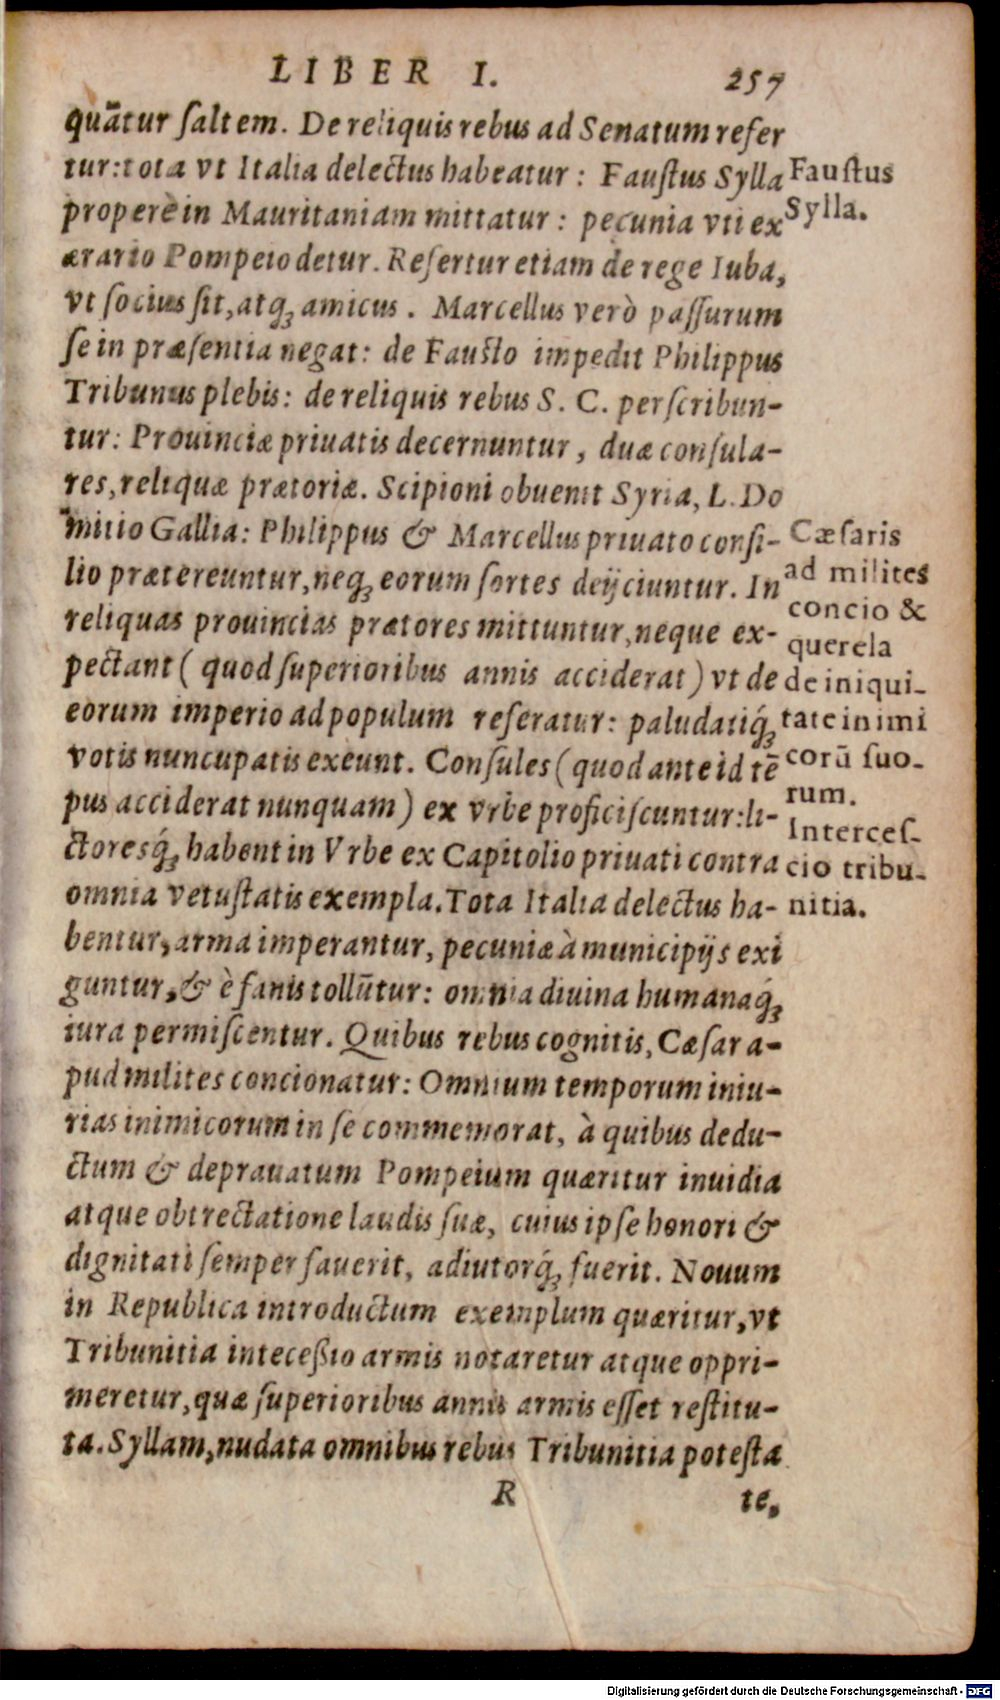 LIBER I. 257
quātur ſaltem. De reliquis rebus ad Senatum refer
tur: tota vt Italia delectus habeatur: Fauſtus Sylla
properè in Mauritaniam mittatur: pecunia vti ex
ærario Pompeio detur. Refertur etiam de rege Iuba,
vt ſocius ſit, atq; amicus. Marcellus verò paſſurum
ſe in præſentia negat: de Fauſto impedit Philippus
Tribunus plebis: de reliquis rebus S. C. perſcribun-
tur: Prouinciæ priuatis decernuntur, duæ conſula-
res, reliquæ prætoriæ. Scipioni obuenit Syria, L. Do
mitio Gallia: Philippus & Marcellus priuato conſi-
lio prætereuntur, neq; eorum ſortes deijciuntur. In
reliquas prouincias prætores mittuntur, neque ex-
pectant (quod ſuperioribus annis acciderat) vt de
eorum imperio ad populum referatur: paludatiq́;
votis nuncupatis exeunt. Conſules (quod ante id tē
pus acciderat nunquam) ex vrbe proficiſcuntur: li-
ctoresq́; habent in Vrbe ex Capitolio priuati contra
omnia vetuſtatis exempla. Tota Italia delectus ha-
bentur, arma imperantur, pecuniæ à municipijs exi
guntur, & è fanis tollūtur: omnia diuina humanaq́;
iura permiſcentur. Quibus rebus cognitis, Cæſar a-
pud milites concionatur: Omnium temporum iniu-
rias inimicorum in ſe commemorat, à quibus dedu-
ctum & deprauatum Pompeium quæritur inuidia
atque obtrectatione laudis ſuæ, cuius ipſe honori &
dignitati ſemper fauerit, adiutorq́; fuerit. Nouum
in Republica introductum exemplum quæritur, vt
Tribunitia inteceßio armis notaretur atque oppri-
meretur, quæ ſuperioribus annis armis eſſet reſtitu-
ta. Syllam, nudata omnibus rebus Tribunitia poteſta
R te,
Fauſtus
Sylla.
Cæſaris
ad milites
concio &
querela
de iniqui-
tate inimi
corū ſuo-
rum.
Interceſ-
cio tribu-
nitia.
Digitalisierung gefördert durch die Deutsche Forschungsgemeinschaft - DFG